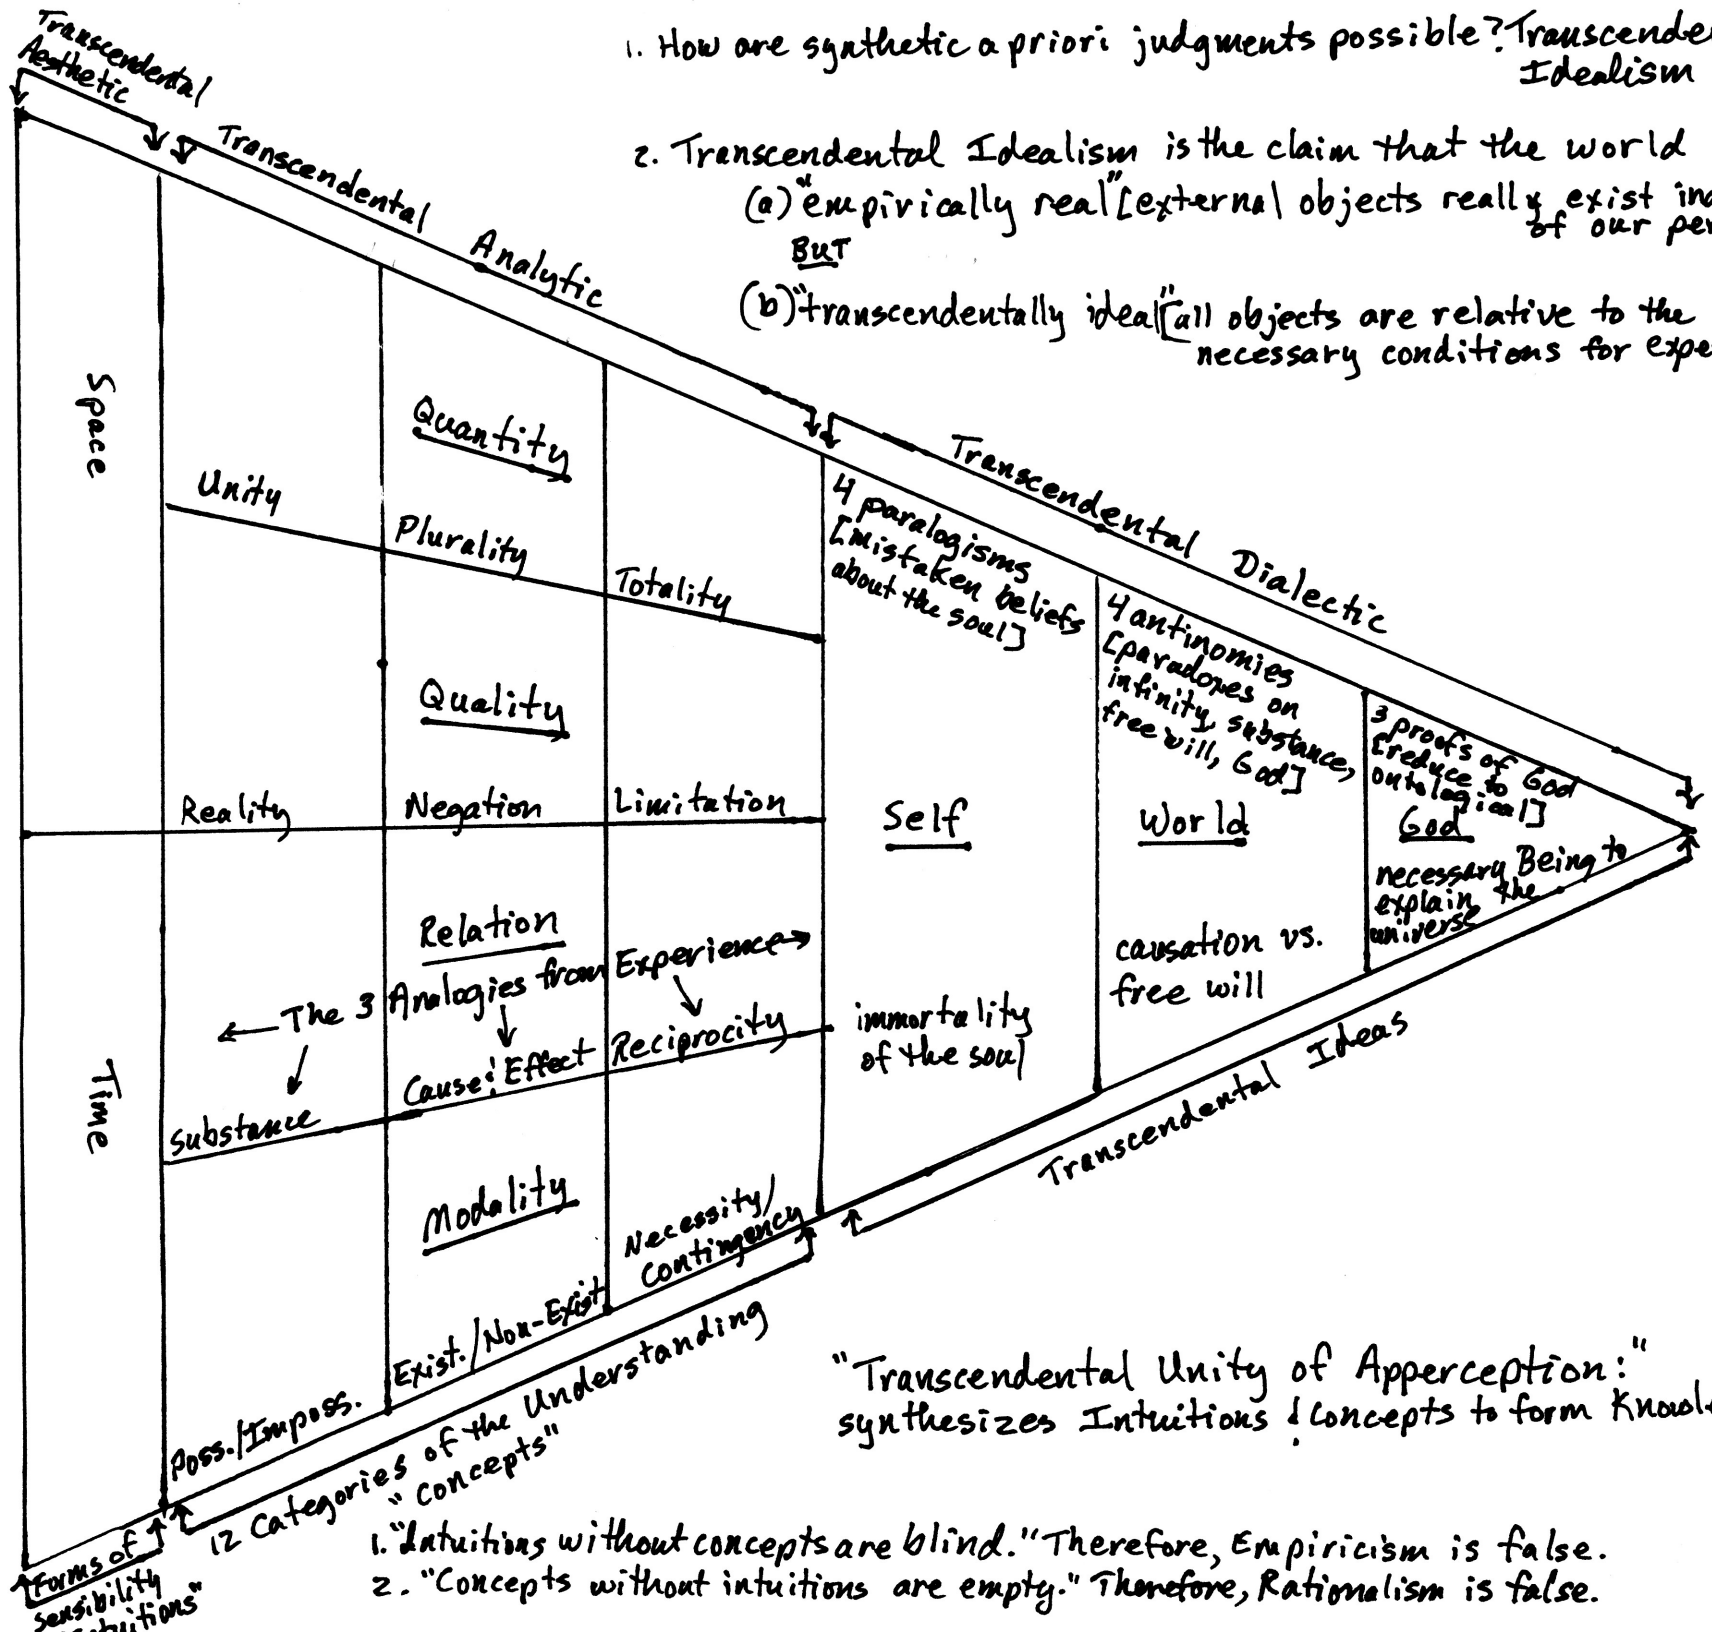 Transcendental
Aesthetic
Transcendental Analytic
Transcendental Dialectic
1. How are synthetic a priori judgments possible? Transcende
Idealism
2. Transcendental Idealism is the claim that the world
(a) "empirically real" [external objects really exist in
of our per
BUT
(b) "transcendentally ideal" [all objects are relative to the
necessary conditions for expe
Space
Time
Quantity
Unity
Plurality
Totality
Quality
Reality
Negation
Limitation
Relation
The 3 Analogies from Experience
Substance
Cause & Effect
Reciprocity
Modality
Poss./Imposs.
Exist./Non-Exist.
Necessity/
Contingency
4 paralogisms
[mistaken beliefs
about the soul]
Self
immortality
of the soul
4 antinomies
[paradoxes on
infinity, substance,
free will, God]
World
causation vs.
free will
3 proofs of God
[reduce to
ontological]
God
necessary Being to
explain the
universe
Transcendental Ideas
12 Categories of the Understanding
"Concepts"
Forms of
sensibility
tuitions"
"Transcendental Unity of Apperception:"
synthesizes Intuitions & Concepts to form Knowl
1. "Intuitions without concepts are blind." Therefore, Empiricism is false.
2. "Concepts without intuitions are empty." Therefore, Rationalism is false.